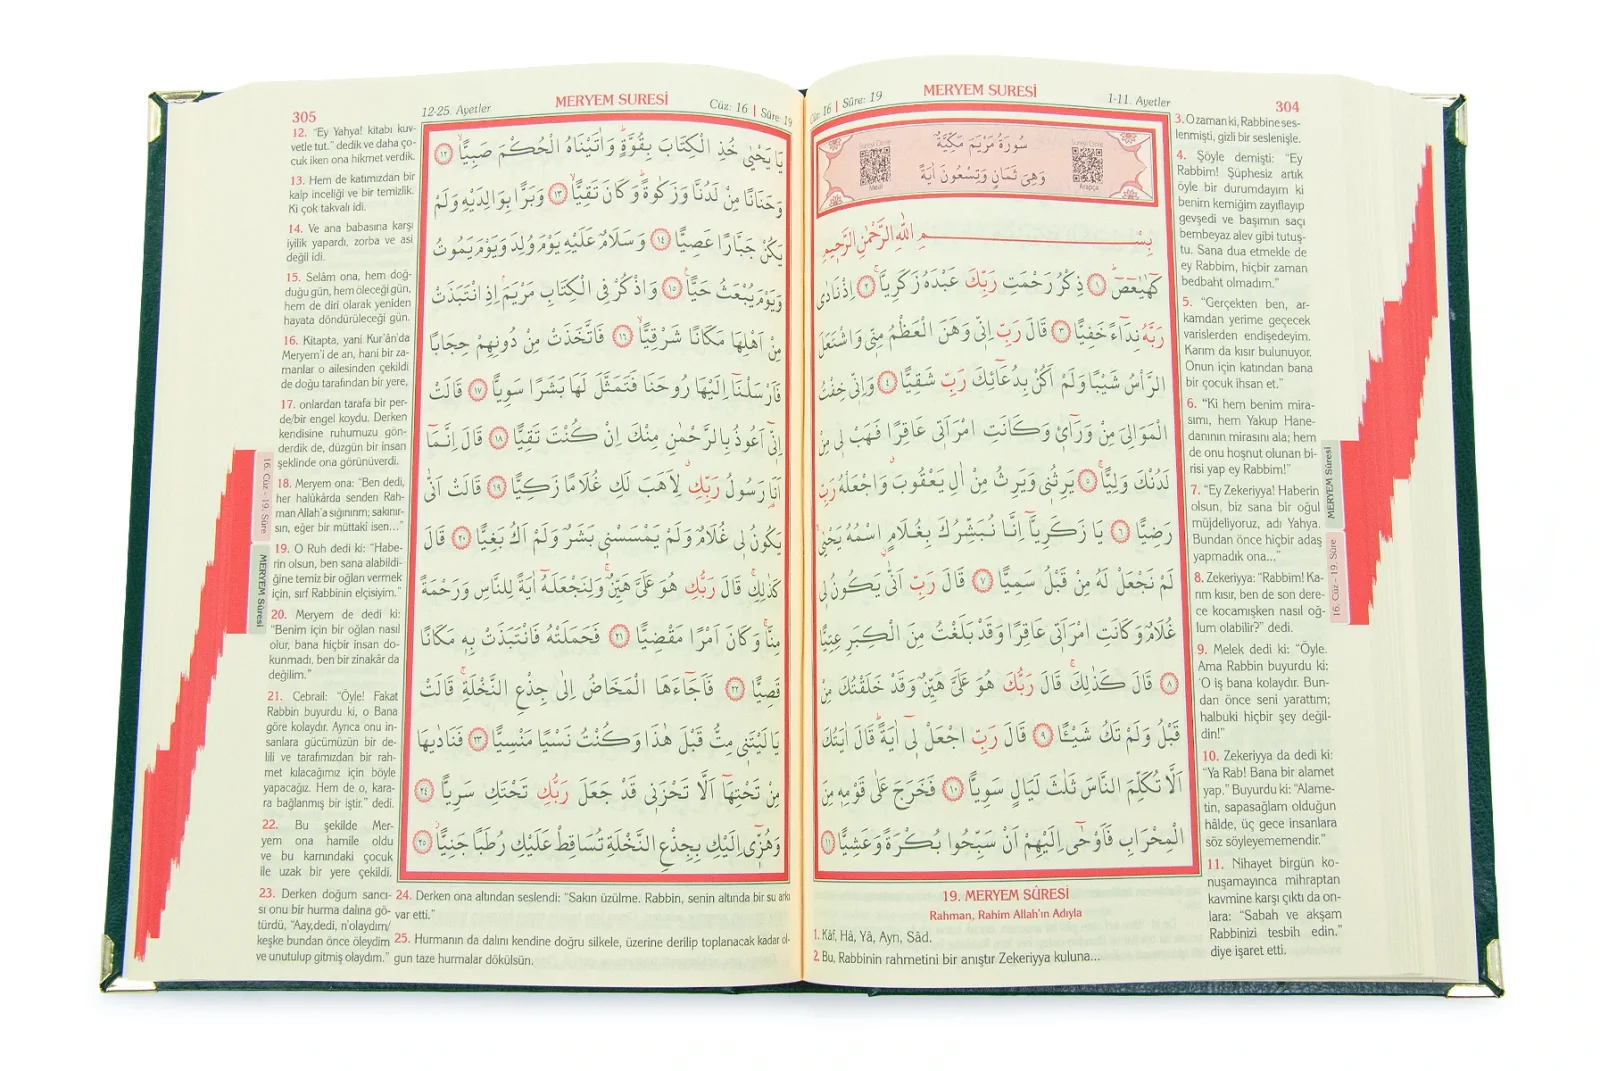 1-11. Ayetler
MERYEM SURESİ
16 | Sûre: 19
304
سُورَةُ مَرْيَمَ مَكِّيَّةٌ
وَهِىَ ثَمَانٍ وَتِسْعُونَ اٰيَةً
Meali
Arapça
بِسْمِ اللّٰهِ الرَّحْمٰنِ الرَّحٖيمِ
كٓهٰيٰعٓصٓ ١ ذِكْرُ رَحْمَتِ رَبِّكَ عَبْدَهُ زَكَرِيَّا ٢ اِذْ نَادٰى
رَبَّهُ نِدَٓاءً خَفِيًّا ٣ قَالَ رَبِّ اِنّٖى وَهَنَ الْعَظْمُ مِنّٖى وَاشْتَعَلَ
الرَّاْسُ شَيْبًا وَلَمْ اَكُنْ بِدُعَٓائِكَ رَبِّ شَقِيًّا ٤ وَاِنّٖى خِفْتُ
الْمَوَالِىَ مِنْ وَرَٓائٖى وَكَانَتِ امْرَاَتٖى عَاقِرًا فَهَبْ لٖى مِنْ
لَدُنْكَ وَلِيًّا ٥ يَرِثُنٖى وَيَرِثُ مِنْ اٰلِ يَعْقُوبَ وَاجْعَلْهُ رَبِّ
رَضِيًّا ٦ يَا زَكَرِيَّٓا اِنَّا نُبَشِّرُكَ بِغُلَامٍ اسْمُهُ يَحْيٰى
لَمْ نَجْعَلْ لَهُ مِنْ قَبْلُ سَمِيًّا ٧ قَالَ رَبِّ اَنّٰى يَكُونُ لٖى
غُلَامٌ وَكَانَتِ امْرَاَتٖى عَاقِرًا وَقَدْ بَلَغْتُ مِنَ الْكِبَرِ عِتِيًّا
٨ قَالَ كَذٰلِكَ قَالَ رَبُّكَ هُوَ عَلَىَّ هَيِّنٌ وَقَدْ خَلَقْتُكَ مِنْ
قَبْلُ وَلَمْ تَكُ شَيْـًٔا ٩ قَالَ رَبِّ اجْعَلْ لٖٓى اٰيَةً قَالَ اٰيَتُكَ
اَلَّا تُكَلِّمَ النَّاسَ ثَلٰثَ لَيَالٍ سَوِيًّا ١٠ فَخَرَجَ عَلٰى قَوْمِهٖ مِنَ
الْمِحْرَابِ فَاَوْحٰٓى اِلَيْهِمْ اَنْ سَبِّحُوا بُكْرَةً وَعَشِيًّا ١١
19. MERYEM SÛRESİ
Rahman, Rahim Allah'ın Adıyla
1. Kâf, Hâ, Yâ, Ayn, Sâd.
2. Bu, Rabbinin rahmetini bir anıştır Zekeriyya kuluna...
3. O zaman ki, Rabbine ses-
lenmişti, gizli bir seslenişle.
4. Şöyle demişti: "Ey
Rabbim! Şüphesiz artık
öyle bir durumdayım ki
benim kemiğim zayıflayıp
gevşedi ve başımın saçı
bembeyaz alev gibi tutuş-
tu. Sana dua etmekle de
ey Rabbim, hiçbir zaman
bedbaht olmadım."
5. "Gerçekten ben, ar-
kamdan yerime geçecek
varislerden endişedeyim.
Karım da kısır bulunuyor.
Onun için katından bana
bir çocuk ihsan et."
6. "Ki hem benim mira-
sımı, hem Yakup Hane-
danının mirasını ala; hem
de onu hoşnut olunan bi-
risi yap ey Rabbim!"
7. "Ey Zekeriyya! Haberin
olsun, biz sana bir oğul
müjdeliyoruz, adı Yahya.
Bundan önce hiçbir adaş
yapmadık ona..."
8. Zekeriyya: "Rabbim! Ka-
rım kısır, ben de son dere-
ce kocamışken nasıl oğ-
lum olabilir?" dedi.
9. Melek dedi ki: "Öyle.
Ama Rabbin buyurdu ki:
'O iş bana kolaydır. Bun-
dan önce seni yarattım;
halbuki hiçbir şey değil-
din!"
10. Zekeriyya da dedi ki:
"Ya Rab! Bana bir alamet
yap." Buyurdu ki: "Alame-
tin, sapasağlam olduğun
hâlde, üç gece insanlara
söz söyleyememendir."
11. Nihayet birgün ko-
nuşamayınca mihraptan
kavmine karşı çıktı da on-
lara: "Sabah ve akşam
Rabbinizi tesbih edin."
diye işaret etti.
MERYEM Sûresi
16. Cüz - 19. Sûre
305
12-25. Ayetler
MERYEM SURESİ
Cüz: 16 | Sûre: 19
يَا يَحْيٰى خُذِ الْكِتَابَ بِقُوَّةٍ وَاٰتَيْنَاهُ الْحُكْمَ صَبِيًّا ١٢
وَحَنَانًا مِنْ لَدُنَّا وَزَكٰوةً وَكَانَ تَقِيًّا ١٣ وَبَرًّا بِوَالِدَيْهِ وَلَمْ
يَكُنْ جَبَّارًا عَصِيًّا ١٤ وَسَلَامٌ عَلَيْهِ يَوْمَ وُلِدَ وَيَوْمَ يَمُوتُ
وَيَوْمَ يُبْعَثُ حَيًّا ١٥ وَاذْكُرْ فِى الْكِتَابِ مَرْيَمَ اِذِ انْتَبَذَتْ
مِنْ اَهْلِهَا مَكَانًا شَرْقِيًّا ١٦ فَاتَّخَذَتْ مِنْ دُونِهِمْ حِجَابًا
فَاَرْسَلْنَٓا اِلَيْهَا رُوحَنَا فَتَمَثَّلَ لَهَا بَشَرًا سَوِيًّا ١٧ قَالَتْ
اِنّٖٓى اَعُوذُ بِالرَّحْمٰنِ مِنْكَ اِنْ كُنْتَ تَقِيًّا ١٨ قَالَ اِنَّمَٓا
اَنَا۬ رَسُولُ رَبِّكِ لِاَهَبَ لَكِ غُلَامًا زَكِيًّا ١٩ قَالَتْ اَنّٰى
يَكُونُ لٖى غُلَامٌ وَلَمْ يَمْسَسْنٖى بَشَرٌ وَلَمْ اَكُ بَغِيًّا ٢٠ قَالَ
كَذٰلِكِ قَالَ رَبُّكِ هُوَ عَلَىَّ هَيِّنٌ وَلِنَجْعَلَهُٓ اٰيَةً لِلنَّاسِ وَرَحْمَةً
مِنَّا وَكَانَ اَمْرًا مَقْضِيًّا ٢١ فَحَمَلَتْهُ فَانْتَبَذَتْ بِهٖ مَكَانًا
قَصِيًّا ٢٢ فَاَجَٓاءَهَا الْمَخَاضُ اِلٰى جِذْعِ النَّخْلَةِ قَالَتْ
يَا لَيْتَنٖى مِتُّ قَبْلَ هٰذَا وَكُنْتُ نَسْيًا مَنْسِيًّا ٢٣ فَنَادٰيهَا
مِنْ تَحْتِهَٓا اَلَّا تَحْزَنٖى قَدْ جَعَلَ رَبُّكِ تَحْتَكِ سَرِيًّا ٢٤
وَهُزّٖٓى اِلَيْكِ بِجِذْعِ النَّخْلَةِ تُسَاقِطْ عَلَيْكِ رُطَبًا جَنِيًّا ٢٥
12. "Ey Yahya! kitabı kuv-
vetle tut." dedik ve daha ço-
cuk iken ona hikmet verdik.
13. Hem de katımızdan bir
kalp inceliği ve bir temizlik.
Ki çok takvalı idi.
14. Ve ana babasına karşı
iyilik yapardı, zorba ve asi
değil idi.
15. Selâm ona, hem doğ-
duğu gün, hem öleceği gün,
hem de diri olarak yeniden
hayata döndürüleceği gün.
16. Kitapta, yani Kur'ân'da
Meryem'i de an, hani bir za-
manlar o ailesinden çekildi
de doğu tarafından bir yere,
17. onlardan tarafa bir per-
de/bir engel koydu. Derken
kendisine ruhumuzu gön-
derdik de, düzgün bir insan
şeklinde ona görünüverdi.
18. Meryem ona: "Ben dedi,
her halûkârda senden Rah-
man Allah'a sığınırım; sakınır-
sın, eğer bir müttakî isen..."
19. O Ruh dedi ki: "Habe-
rin olsun, ben sana alabildi-
ğine temiz bir oğlan vermek
için, sırf Rabbinin elçisiyim."
20. Meryem de dedi ki:
"Benim için bir oğlan nasıl
olur, bana hiçbir insan do-
kunmadı, ben bir zinakâr da
değilim."
21. Cebrail: "Öyle! Fakat
Rabbin buyurdu ki, o Bana
göre kolaydır. Ayrıca onu in-
sanlara gücümüzün bir de-
lili ve tarafımızdan bir rah-
met kılacağımız için böyle
yapacağız. Hem de o, kara-
ra bağlanmış bir iştir." dedi.
22. Bu şekilde Mer-
yem ona hamile oldu
ve bu karnındaki çocuk
ile uzak bir yere çekildi.
23. Derken doğum sancı-
sı onu bir hurma dalına gö-
türdü, "Aay,dedi, n'olaydım/
keşke bundan önce öleydim
ve unutulup gitmiş olaydım."
24. Derken ona altından seslendi: "Sakın üzülme. Rabbin, senin altında bir su arkı
var etti."
25. Hurmanın da dalını kendine doğru silkele, üzerine derilip toplanacak kadar ol-
gun taze hurmalar dökülsün.
16. Cüz - 19. Sûre
MERYEM Sûresi